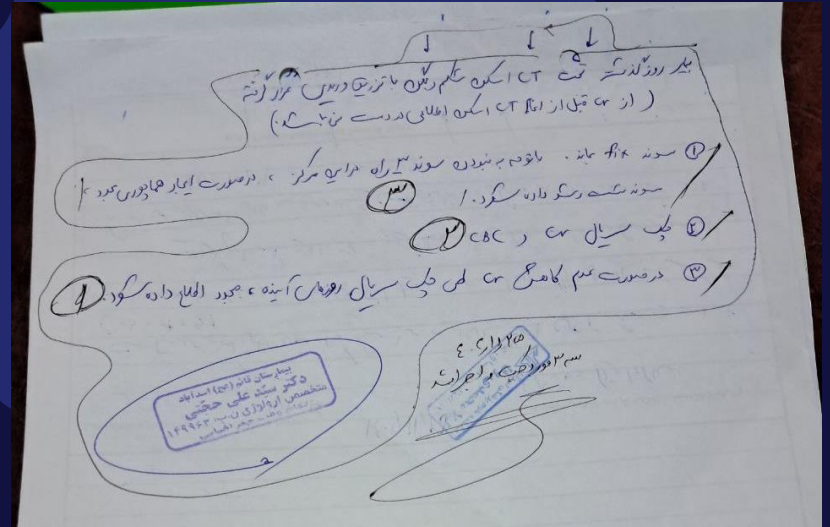 بیمار روز گذشته تحت CT اسکن شکم و لگن با تزریق وریدی قرار گرفته
(از Cr قبل از انجام CT اسکن اطلاعی در دست نمی‌باشد.)
① سوند fix بماند. باتوجه به نبودن سوند ۳ راه در این مرکز، درصورت ایجاد هماچوری مجدد،
سوند شست و شو داده شود. ۳
② چک سریال Cr و CBC ۲
③ درصورت عدم کاهش Cr طی چک سریال روزهای آینده، مجدد اطلاع داده شود. ۱
بیمارستان قائم (عج) اسدآباد
دکتر سید علی حجتی
متخصص ارولوژی
۱۴۹۹۶۳